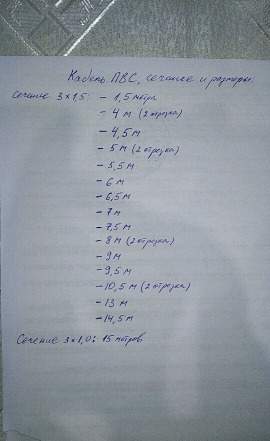 Кабель ПВС, сечение и размеры:
Сечение 3х1,5: - 1,5 метра
- 4 м (2 отрезка)
- 4,5 м
- 5 м (2 отрезка)
- 5,5 м
- 6 м
- 6,5 м
- 7 м
- 7,5 м
- 8 м (2 отрезка)
- 9 м
- 9,5 м
- 10,5 м (2 отрезка)
- 13 м
- 14,5 м
Сечение 3х1,0: 15 метров